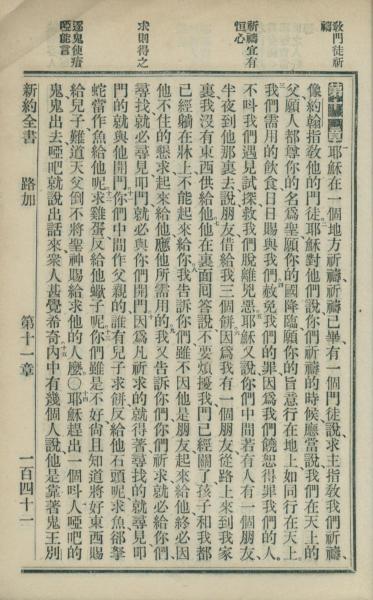 敎門徒祈禱
祈禱宜有恒心
求則得之
逐鬼使瘖啞能言
第十一章耶穌在一個地方祈禱祈禱已畢有一個門徒說求主指敎我們祈禱
像約翰指敎他的門徒耶穌對他們說你們祈禱的時候應當說我們在天上的
父願人都尊你的名爲聖願你的國降臨願你的旨意行在地上如同行在天上
我們需用的飲食日日賜與我們赦免我們的罪因爲我們饒恕得罪我們的人
不叫我們遇見試探救我們脫離兇惡耶穌又說你們中間若有人有一個朋友
半夜到他那裏去說朋友借給我三個餅因爲我有一個朋友從路上來到我家
裏我沒有東西供給他他在裏面回答說不要煩擾我門已經關了孩子和我都
已經躺在牀上不能起來給你我告訴你們雖不因他是朋友起來給他終必因
他不住的懇求起來給他應他所需用的我又告訴你們你們祈求就必給你們
尋找就必尋見叩門就必與你們開門因爲凡祈求的就得著尋找的就尋見叩
門的就與他開門你們中間作父親的誰有兒子求餅反給他石頭呢求魚卻拏
蛇當作魚給他呢求雞蛋反給他蠍子呢你們雖是不好尙且知道將好東西賜
給兒子難道天父倒不將聖神賜給求他的人麽○耶穌趕出一個叫人啞吧的
鬼鬼出去啞吧就說出話來衆人甚覺希奇內中有幾個人說他是靠著鬼王別
新約全書　路加　第十一章　一百四十二